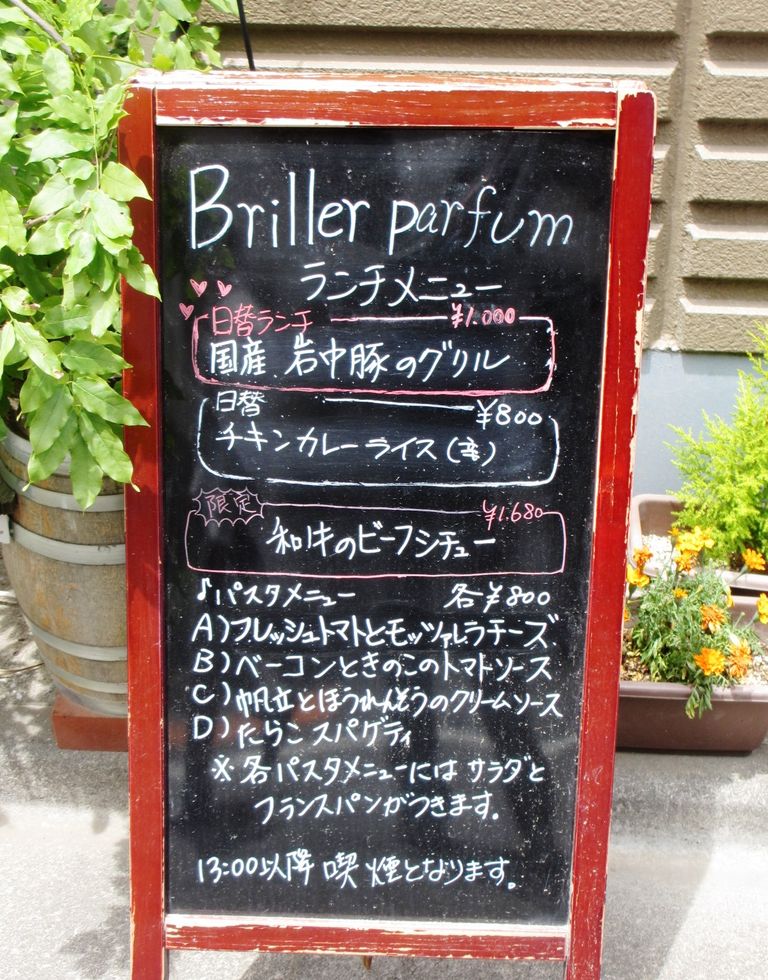 Briller parfum
ランチメニュー
日替ランチ ¥1.000
国産 岩中豚のグリル
日替 ¥800
チキンカレーライス(辛)
限定 ¥1.680
和牛のビーフシチュー
♪パスタメニュー 各¥800
A)フレッシュトマトとモッツァレラチーズ
B)ベーコンときのこのトマトソース
C)帆立とほうれんそうのクリームソース
D)たらこスパゲティ
※各パスタメニューにはサラダと
フランスパンがつきます。
13:00以降喫煙となります。